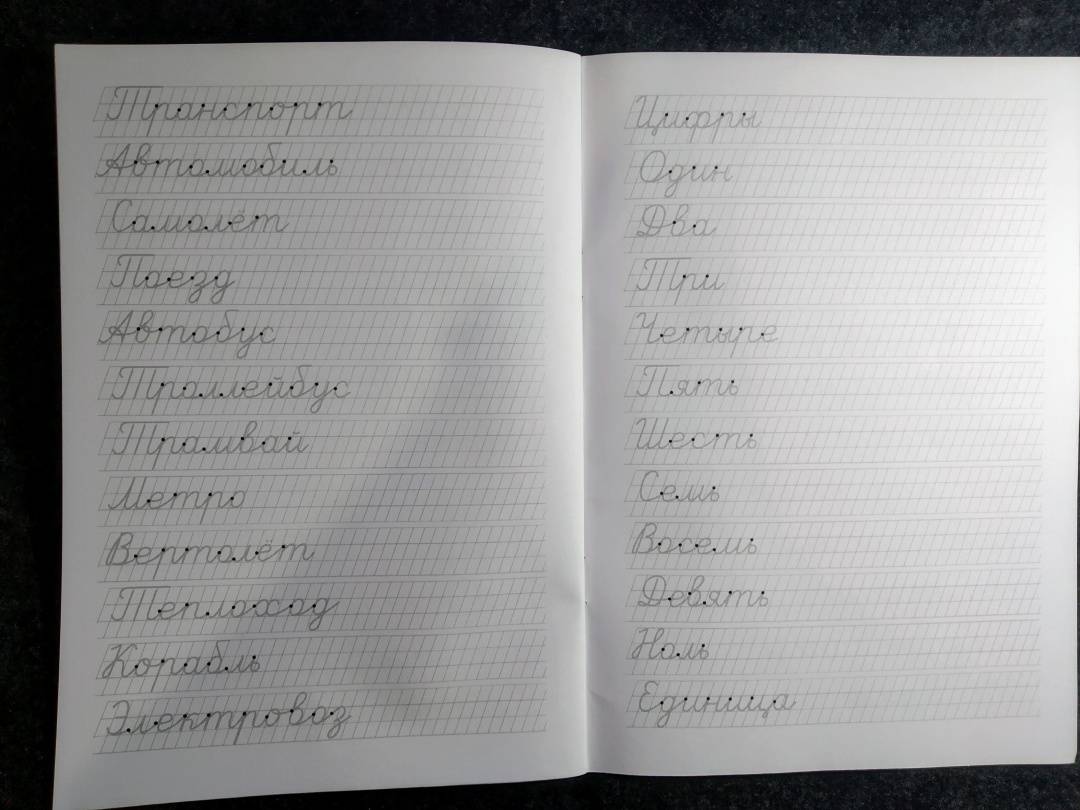 Транспорт
Автомобиль
Самолёт
Поезд
Автобус
Троллейбус
Трамвай
Метро
Вертолёт
Теплоход
Корабль
Электровоз
Цифры
Один
Два
Три
Четыре
Пять
Шесть
Семь
Восемь
Девять
Ноль
Единица